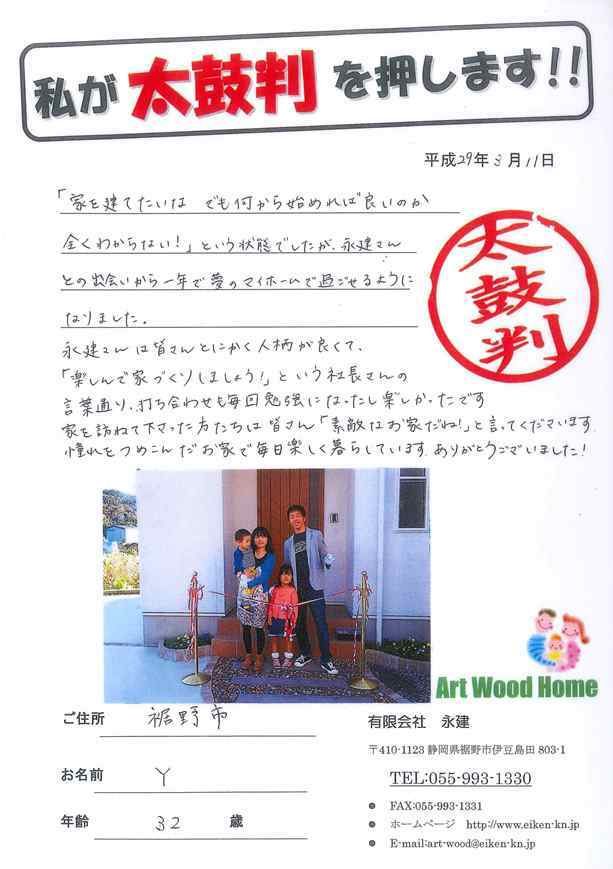 私が太鼓判を押します!!
平成29年3月11日
「家を建てたいな でも何から始めれば良いのか
全くわからない!」という状態でしたが、永建さん
との出会いから一年で夢のマイホームで過ごせるように
なりました。
永建さんは皆さんとにかく人柄が良くて、
「楽しんで家づくりしましょう!」という社長さんの
言葉通り、打ち合わせも毎回勉強になったし楽しかったです
家を訪ねて下さった方たちは皆さん「素敵なお家だね!」と言ってくださいます。
憧れをつめこんだお家で毎日楽しく暮らしています。ありがとうございました!
太鼓判
Art Wood Home
ご住所 裾野市
お名前 Y
年齢 32 歳
有限会社 永建
〒410-1123 静岡県裾野市伊豆島田 803-1
TEL:055-993-1330
● FAX:055-993-1331
● ホームページ http://www.eiken-kn.jp
● E-mail:art-wood@eiken-kn.jp